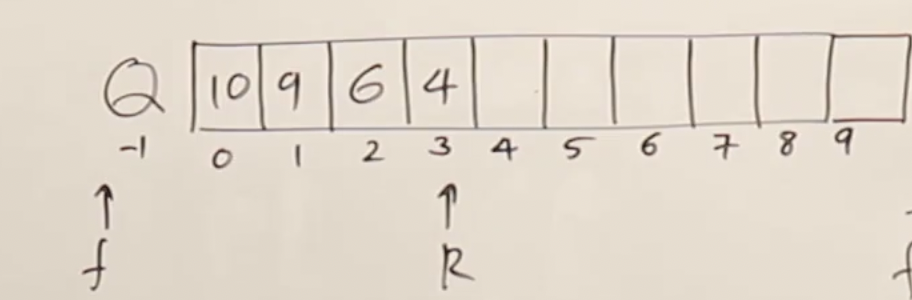 Q 10 9 6 4
-1 0 1 2 3 4 5 6 7 8 9
↑ ↑
f R